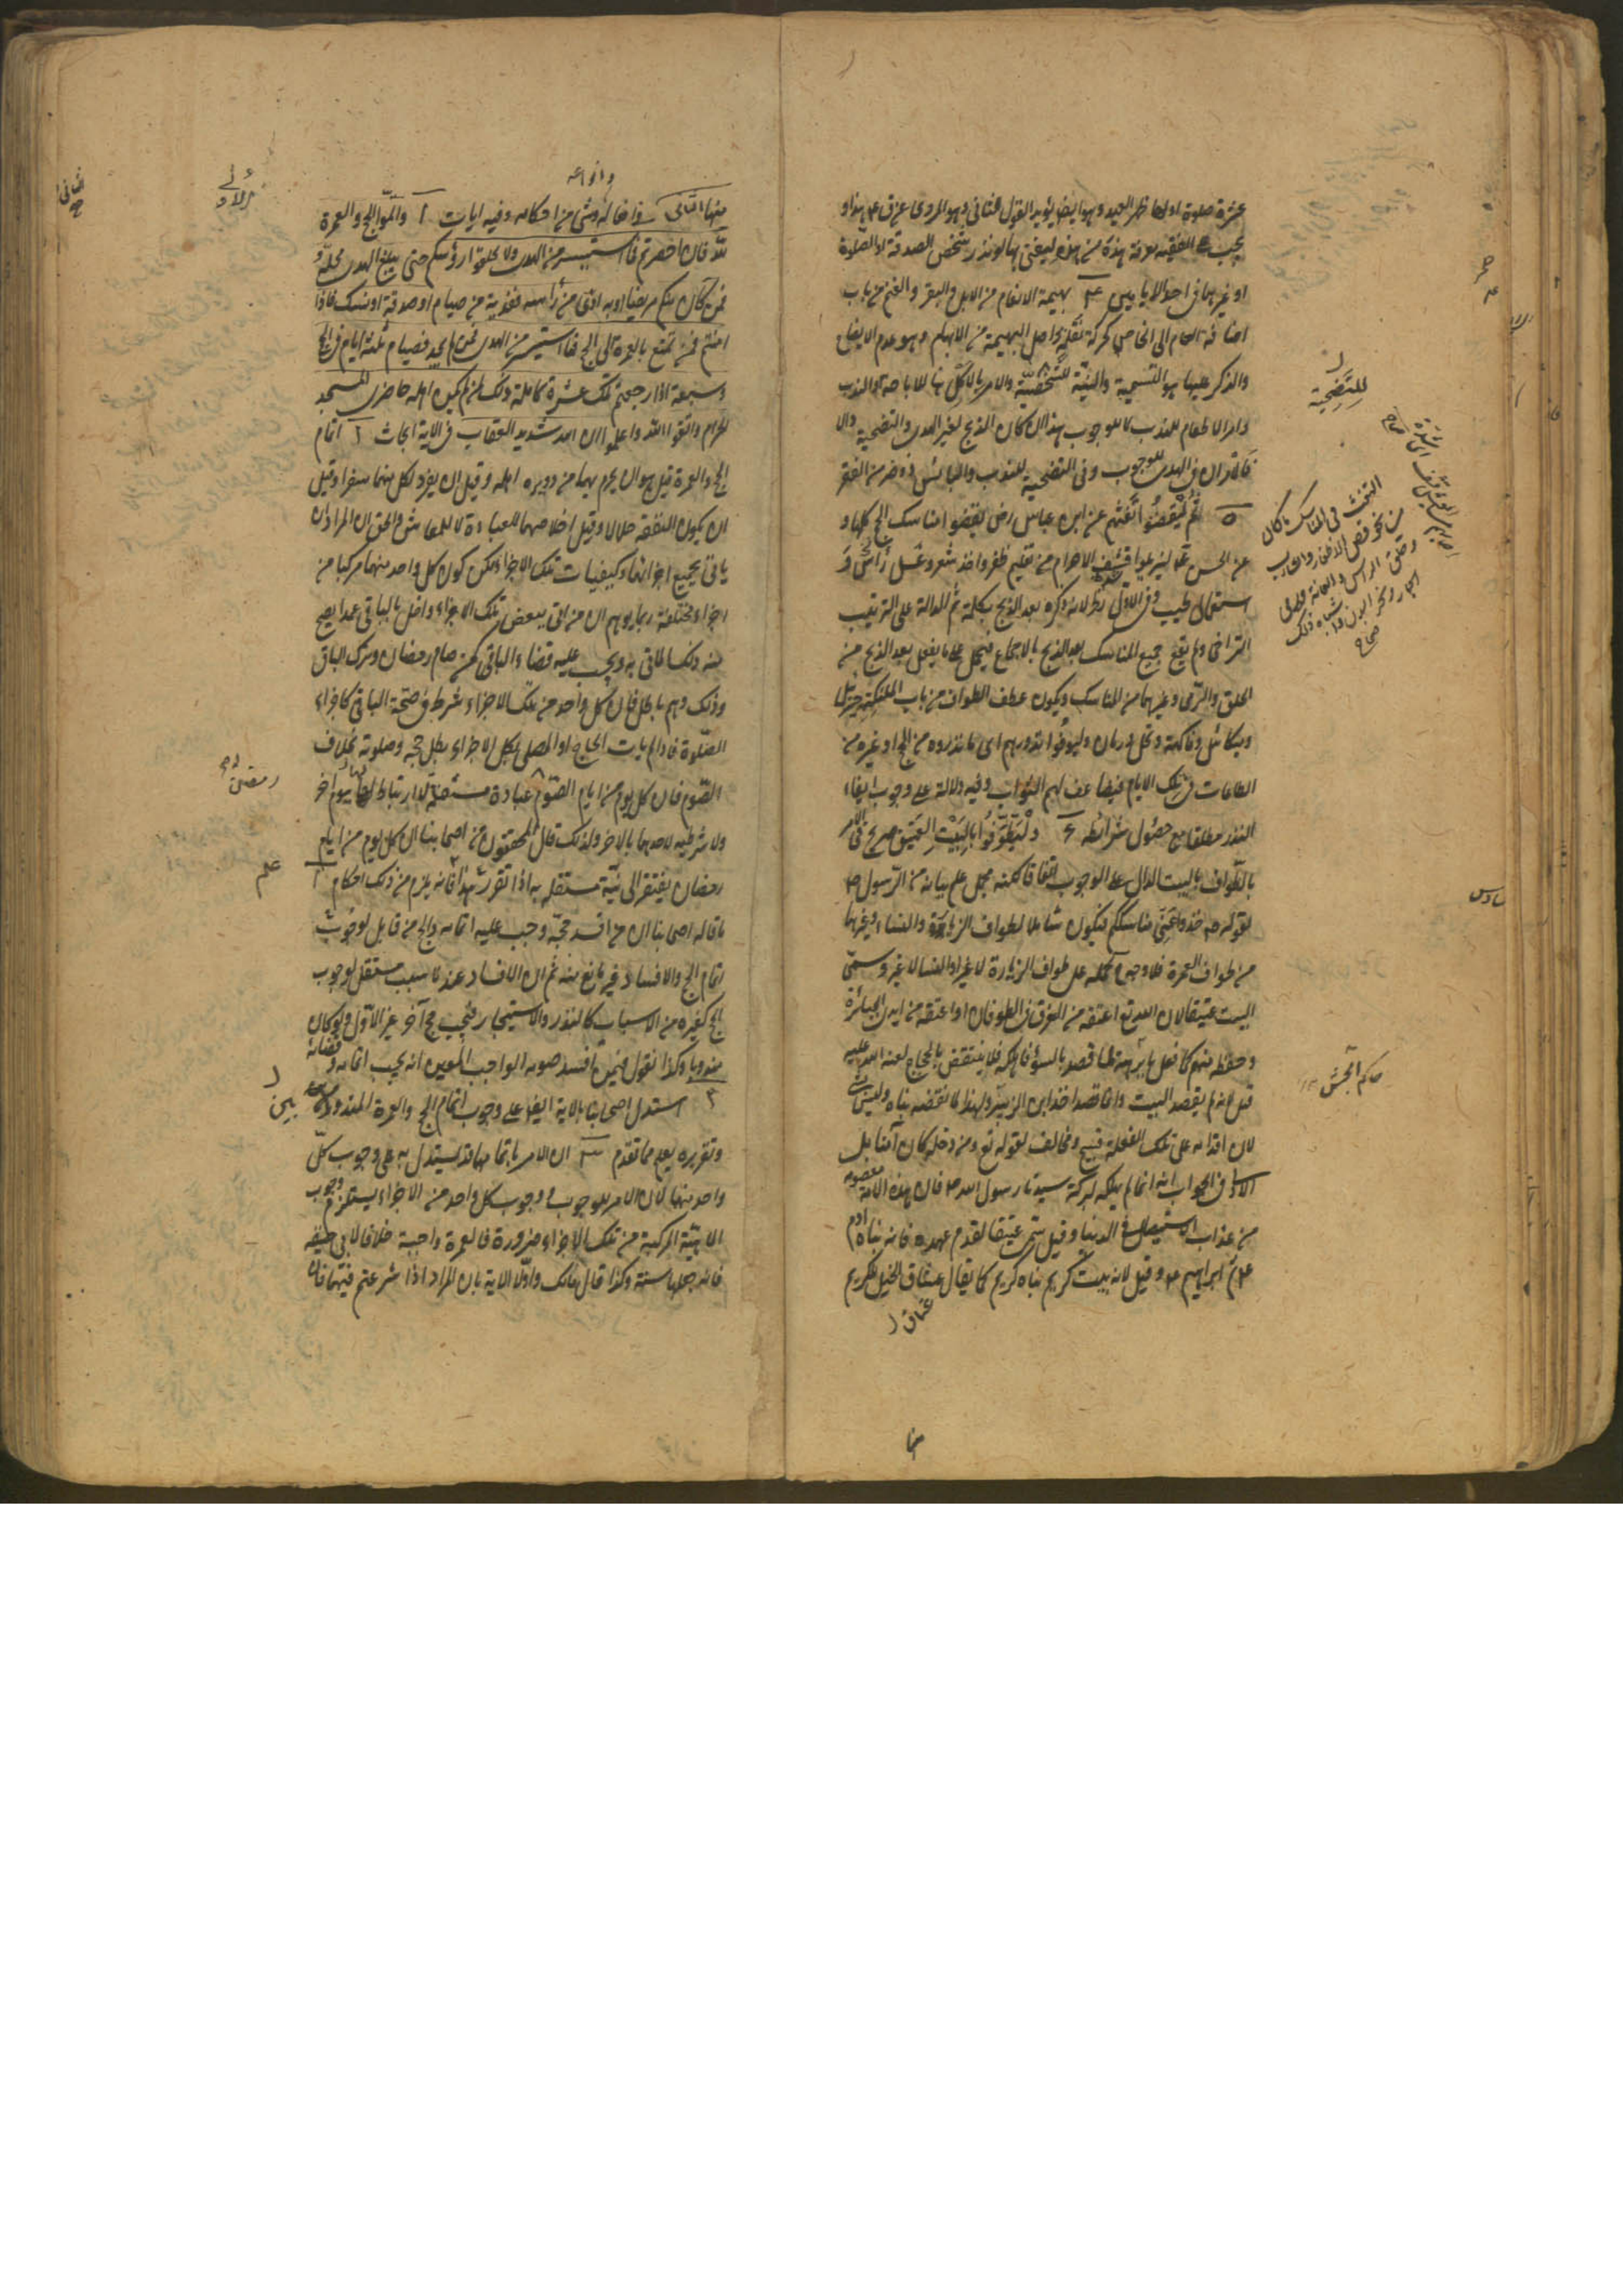 عشرة صلوة اولها ظهر العيد وهو ايضا يؤيد القول الثانى وهو المروى عن ق ع هذا و
يجب على الفقيه معرفة هذه من هذه ليفتى بها لو نذر شخص الصدقة او الصلوة
او غيرها فى احد الايامين ٤ بهيمة الانعام من الابل والبقر والغنم من باب
اضافة العام الى الخاص واصل البهيمة من الابهام وهو عدم الايضاح
والذكر عليها هو التسمية والنية للتضحية والامر بالاكل هنا للاباحة او الندب
وامر الاطعام للندب لا للوجوب هذا ان كان الذبح لغير الهدى والتضحية والا
فالامر ان فى الهدى للوجوب وفى التضحية للندب والبائس ذو ضر من الفقر
٥ ثُمَّ لْيَقْضُوا تَفَثَهُم عن ابن عباس رض ليقضوا مناسك الحج كلها و
عن الحسن تع ليزيلوا قشف الاحرام من تقليم ظفر واخذ شعر وغسل رأس و
استعمال طيب وفى الاول نظر لانه ذكره بعد الذبح بكلمة ثم الدالة على الترتيب
التراخى ولم يقع جميع المناسك بعد الذبح بالاجماع فيحمل على ما يفعل بعد الذبح من
الحلق والرمى وغيرهما من المناسك ويكون عطف الطواف من باب الملئكة وجبرئيل
وميكائيل وفاكهة ونخل ورمان وليوفوا نذورهم اى ما نذروه من الحج او غيره من
الطاعات فى تلك الايام فيضاعف لهم الثواب وفيه دلالة على وجوب ايفاء
النذر مطلقا مع حصول شرائطه ٦ وَلْيَطَّوَّفُوا بِالْبَيْتِ الْعَتِيقِ صريح فى الامر
بالطواف بالبيت الدال على الوجوب اتفاقا لكنه مجمل علم بيانه من الرسول ص
لقوله ص خذوا عَنّى مناسككم فيكون شاملا لطواف الزيارة والنساء وغيرهما
من طواف العمرة فلا وجه لحمله على طواف الزيارة لا غير او النساء لا غير وسمى
البيت عتيقا لان الله تع اعتقه من الغرق فى الطوفان او اعتقه من ايدى الجبابرة
وحفظه منهم كما فعل بابرهة لما قصد بالسوء فاهلكه فلا ينتقض بالحجاج لعنه الله عليه
قيل لانه لم يقصد البيت وانما قصد اخذ ابن الزبير ولهذا لما نقضه بناه وليس
لان اقدامه على تلك الفعلة قبيح ومخالف لقوله تع ومن دخله كان آمنا بل
الاولى فى الجواب انه انما لم يهلكه لبركة سيدنا رسول الله ص فان هذه الامة معصومة
من عذاب الاستيصال فى الدنيا وقيل سمى عتيقا لقدم عهده فانه بناه آدم
ع ثم ابراهيم ع وقيل لانه بيت كريم بناه كريم كما يقال عتاق الخيل لكريم
عتاق ر
للتضحية
التفث فى المناسك ما كان
من نحو قص الاظفار والشارب
وحلق الرأس والعانة ورمى
الجمار ونحر البدن واشباه ذلك
صحاح
سادس
وانواعه
منها الثانى فى افعاله وشىء من احكامه وفيه ايات ١ واتموا الحج والعمرة
لله فان احصرتم فما استيسر من الهدى ولا تحلقوا رؤسكم حتى يبلغ الهدى محله
فمن كان منكم مريضا او به اذى من رأسه ففدية من صيام او صدقة او نسك فاذا
امنتم فمن تمتع بالعمرة الى الحج فما استيسر من الهدى فمن لم يجد فصيام ثلثة ايام فى الحج
وسبعة اذا رجعتم تلك عشرة كاملة ذلك لمن لم يكن اهله حاضرى المسجد
الحرام واتقوا الله واعلموا ان الله شديد العقاب فى الاية ابحاث ١ اتمام
الحج والعمرة قيل هو ان يحرم بهما من دويره اهله وقيل ان يفرد لكل منهما سفرا وقيل
ان يكون النفقة حلالا وقيل اخلاصهما للعبادة لا للمعاش والحق ان المراد ان
ياتى بجميع اجزائهما وكيفيات تلك الاجزاء لكن كون كل واحد منهما مركبا من
اجزاء مختلفة ربما يوهم ان من اتى ببعض تلك الاجزاء واخل بالباقى عمدا يصح
منه ذلك الماتى به ويجب عليه قضاء الباقى كمن صام رمضان وترك الباقى
وذلك وهم باطل فان كل واحد من تلك الاجزاء شرط فى صحة الباقى كاجزاء
الصلوة فاذا لم يات الحاج او المصلى بكل الاجزاء بطل حجه وصلوته بخلاف
الصوم فان كل يوم من ايام الصوم عبادة مستقلة لا ارتباط لها بيوم اخر
ولا شرطية لاحدهما بالاخر ولذلك قال المحققون من اصحابنا ان كل يوم من ايام
رمضان يفتقر الى نية مستقلة به اذا تقرر هذا فانه يلزم من ذلك احكام ١
ما قاله اصحابنا ان من افسد حجه وجب عليه اتمامه والحج من قابل لوجوب
اتمام الحج والافساد غير مانع منه ثم ان الافساد عندنا سبب مستقل لوجوب
الحج كغيره من الاسباب كالنذر والاستيجار فيجب حج آخر غير الاول ولو كان
مندوبا وكذا نقول فيمن افسد صومه الواجب المعين انه يجب اتمامه وقضائه
٢ استدل اصحابنا بالاية ايضا على وجوب اتمام الحج والعمرة المندوبين
وتقريره يعلم مما تقدم ٣ ان الامر باتمامهما قد يستدل به على وجوب كل
واحد منهما لان الامر للوجوب ووجوب كل واحد من الاجزاء يستلزم وجوب
الماهية المركبة من تلك الاجزاء ضرورة فالعمرة واجبة خلافا لابى حنيفه
فانه جعلها سنة وكذا قال مالك واولا الاية بان المراد اذا شرعتم فيهما فان
رمضان
علم
بين ر